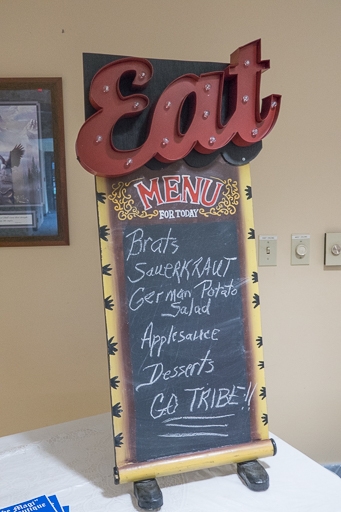 Eat
MENU
FOR TODAY
Brats
SAUERKRAUT
German Potato
Salad
Applesauce
Desserts
GO TRIBE!!